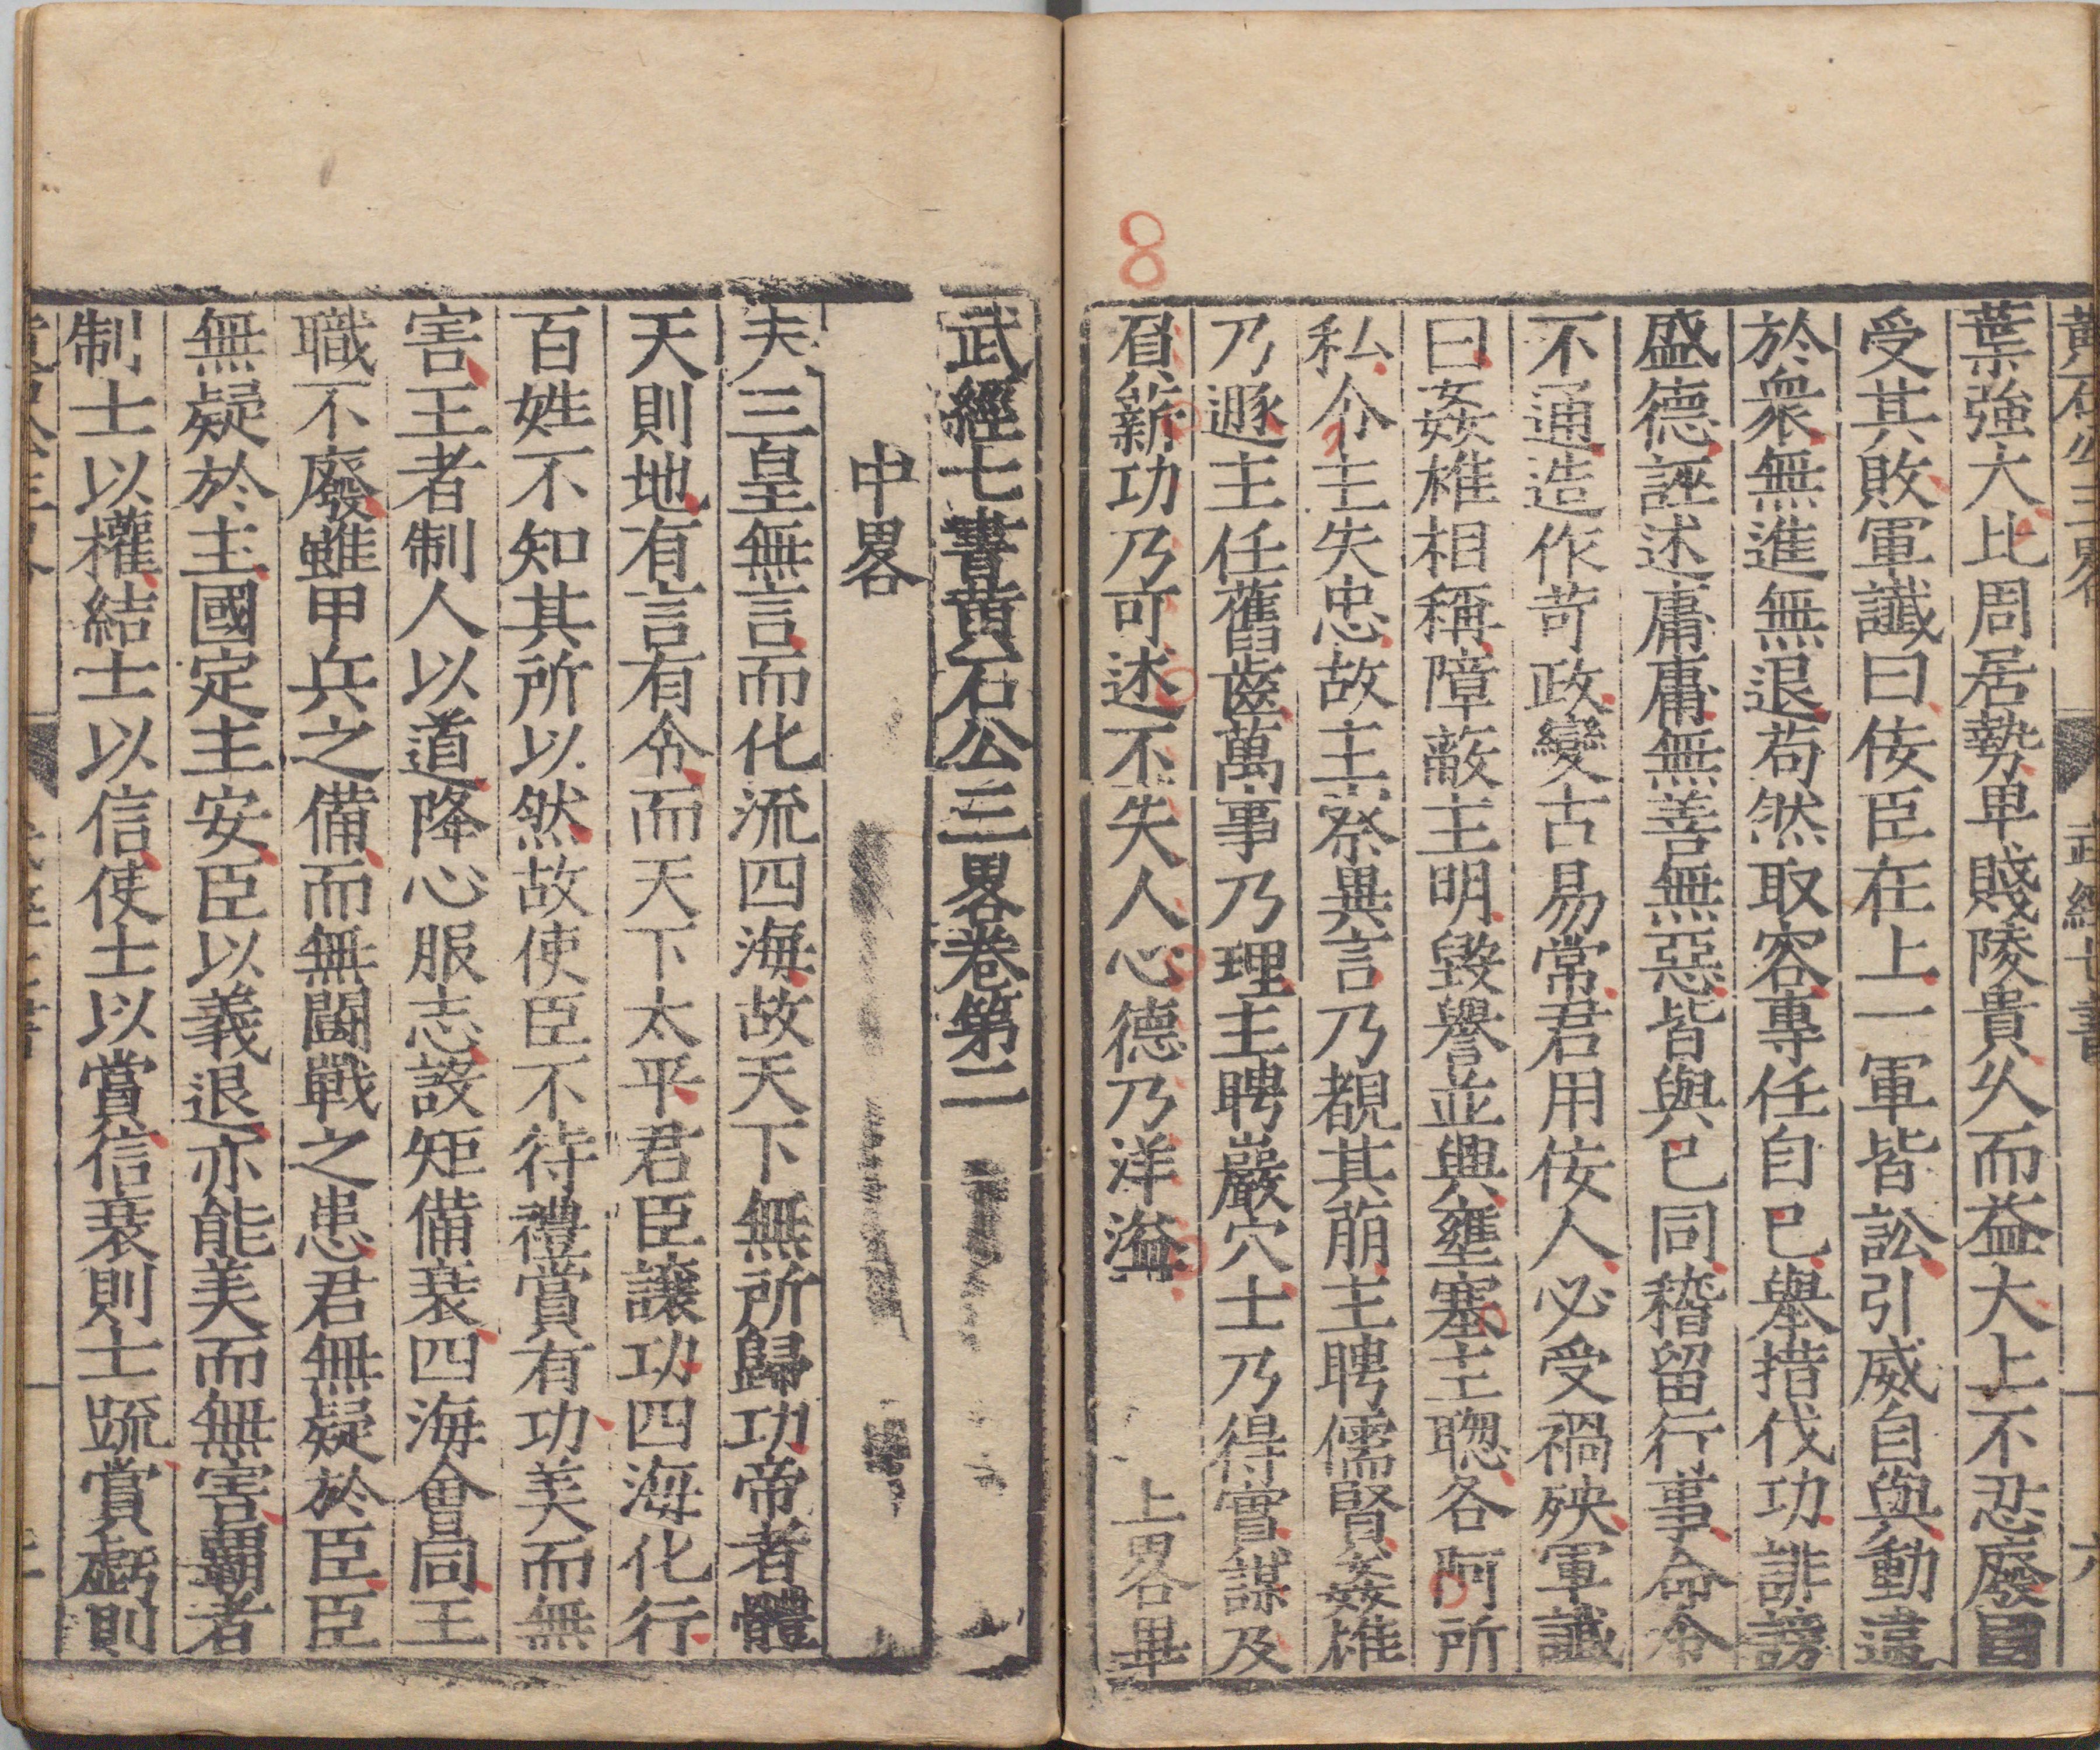 黄石公三畧 武經七書 九
葉強大比周居勢卑賤陵貴久而益大上不忍廢國
受其敗軍讖曰佞臣在上一軍皆訟引威自與動違
於衆無進無退苟然取容專任自己舉措伐功誹謗
盛德誣述庸庸無善無惡皆與己同稽留行事命令
不通造作苛政變古易常君用佞人必受禍殃軍讖
曰姦雄相稱障蔽主明毀譽並興壅塞主聦各阿所
私令主失忠故主察異言乃覩其萠主聘儒賢姦雄
乃遯主任舊齒萬事乃理主聘巖穴士乃得實謀及
負薪功乃可述不失人心德乃洋溢 上畧畢
8
武經七書黄石公三畧卷第二
中畧
夫三皇無言而化流四海故天下無所歸功帝者體
天則地有言有令而天下太平君臣讓功四海化行
百姓不知其所以然故使臣不待禮賞有功美而無
害王者制人以道降心服志設矩備衰四海會同王
職不廢雖甲兵之備而無鬪戰之患君無疑於臣臣
無疑於主國定主安臣以義退亦能美而無害覇者
制士以權結士以信使士以賞信衰則士疏賞虧則